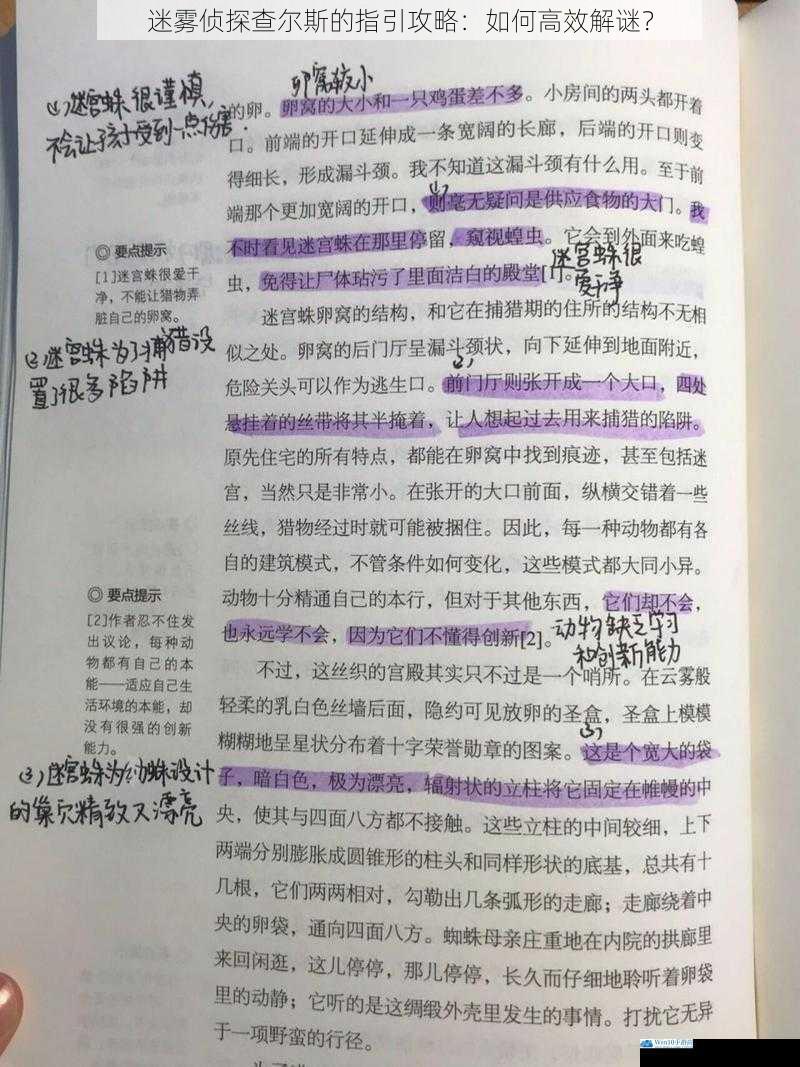 迷雾侦探查尔斯的指引攻略：如何高效解谜？
卵窝较小
(1)迷宫蛛很谨慎，
不会让孩子受到一点伤害．
的卵。卵窝的大小和一只鸡蛋差不多。小房间的两头都开着
口。前端的开口延伸成一条宽阔的长廊，后端的开口则变
得细长，形成漏斗颈。我不知道这漏斗颈有什么用。至于前
(1)
端那个更加宽阔的开口，则毫无疑问是供应食物的大门。我
不时看见迷宫蛛在那里停留，窥视蝗虫。它会到外面来吃蝗
虫，免得让尸体玷污了里面洁白的殿堂[1]。
迷宫蛛很
爱净
◎ 要点提示
[1]迷宫蛛很爱干
净，不能让猎物弄
脏自己的卵窝。
迷宫蛛卵窝的结构，和它在捕猎期的住所的结构不无相
似之处。卵窝的后门厅呈漏斗颈状，向下延伸到地面附近，
(2)
危险关头可以作为逃生口。前门厅则张开成一个大口，四处
悬挂着的丝带将其半掩着，让人想起过去用来捕猎的陷阱。
(2)迷宫蛛为了捕猎设
置了很多陷阱
原先住宅的所有特点，都能在卵窝中找到痕迹，甚至包括迷
宫，当然只是非常小。在张开的大口前面，纵横交错着一些
丝线，猎物经过时就可能被捆住。因此，每一种动物都有各
自的建筑模式，不管条件如何变化，这些模式都大同小异。
动物十分精通自己的本行，但对于其他东西，它们却不会，
也永远学不会，因为它们不懂得创新[2]。
动物缺乏学习
和创新能力
◎ 要点提示
[2]作者忍不住发
出议论，每种动
物都有自己的本
能——适应自己生
活环境的本能，却
没有很强的创新
能力。
不过，这丝织的宫殿其实只不过是一个哨所。在云雾般
轻柔的乳白色丝墙后面，隐约可见放卵的圣盒，圣盒上模模
(3)
糊糊地呈星状分布着十字荣誉勋章的图案。这是个宽大的袋
子，暗白色，极为漂亮，辐射状的立柱将它固定在帷幔的中
(3)迷宫蛛为幼蛛设计
的巢穴精致又漂亮
央，使其与四面八方都不接触。这些立柱的中间较细，上下
两端分别膨胀成圆锥形的柱头和同样形状的底基，总共有十
几根，它们两两相对，勾勒出几条弧形的走廊；走廊绕着中
央的卵袋，通向四面八方。蜘蛛母亲庄重地在内院的拱廊里
来回闲逛，这儿停停，那儿停停，长久而仔细地聆听着卵袋
里的动静；它听的是这绸缎外壳里发生的事情。打扰它无异
于一项野蛮的行径。